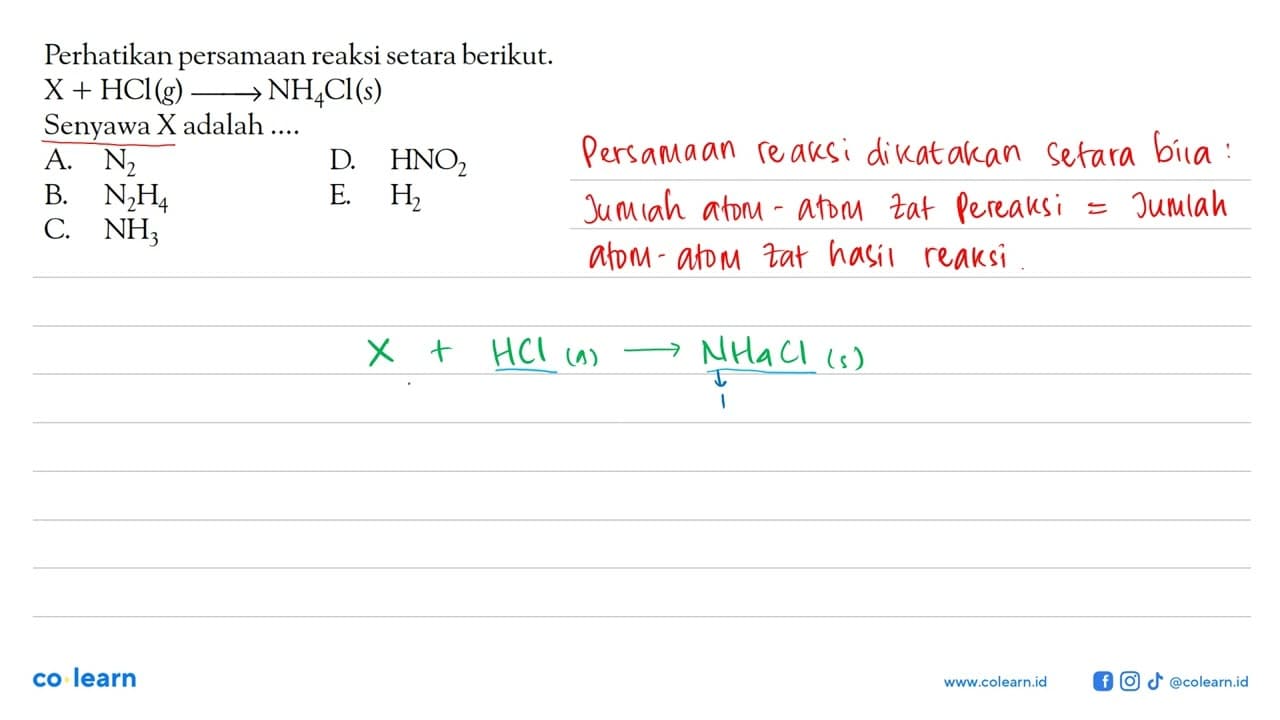 Perhatikan persamaan reaksi setara berikut.
X + HCl(g) ⟶ NH₄Cl(s)
Senyawa X adalah ....
A. N₂
B. N₂H₄
C. NH₃
D. HNO₂
E. H₂
Persamaan reaksi dikatakan setara bila :
Jumlah atom - atom zat Pereaksi = Jumlah
atom - atom zat hasil reaksi.
X + HCl (g) → NH4Cl (s)
↓
1
co learn
www.colearn.id
@colearn.id